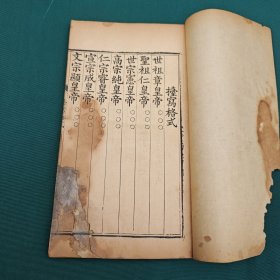 擡寫格式
世祖章皇帝○○○
聖祖仁皇帝○○○
世宗憲皇帝○○○
高宗純皇帝○○○
仁宗睿皇帝○○○
宣宗成皇帝○○○
文宗顯皇帝○○○